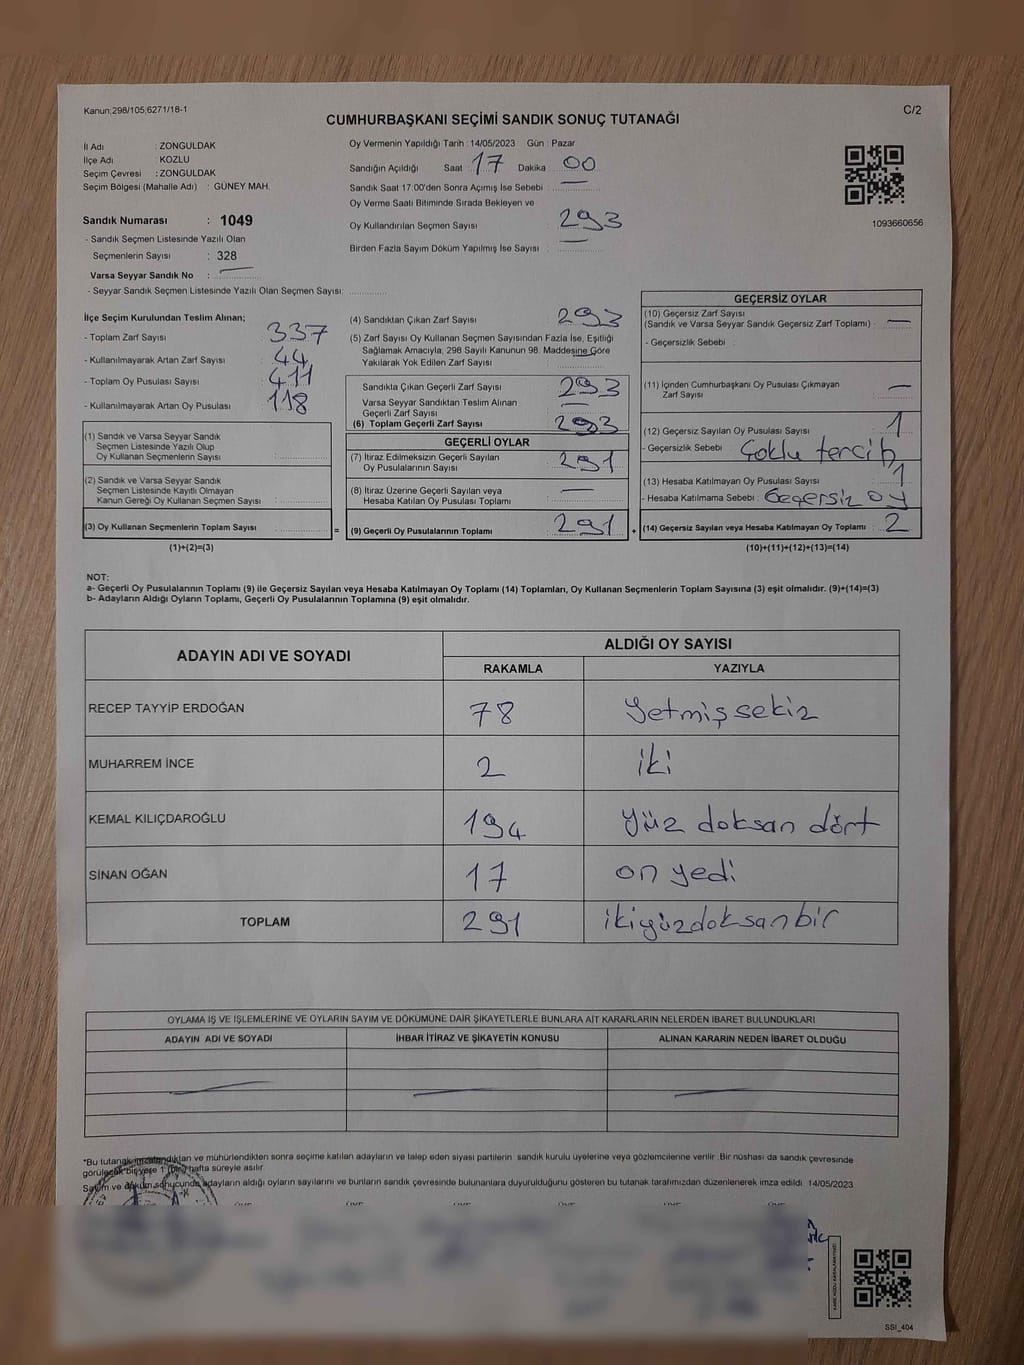 Kanun;298/105;6271/18-1
C/2
CUMHURBAŞKANI SEÇİMİ SANDIK SONUÇ TUTANAĞI
İl Adı : ZONGULDAK
İlçe Adı : KOZLU
Seçim Çevresi : ZONGULDAK
Seçim Bölgesi (Mahalle Adı) : GÜNEY MAH.
Sandık Numarası : 1049
- Sandık Seçmen Listesinde Yazılı Olan
Seçmenlerin Sayısı : 328
Varsa Seyyar Sandık No : —
- Seyyar Sandık Seçmen Listesinde Yazılı Olan Seçmen Sayısı:
Oy Vermenin Yapıldığı Tarih : 14/05/2023 Gün : Pazar
Sandığın Açıldığı Saat : 17 Dakika : 00
Sandık Saat 17.00'den Sonra Açımış İse Sebebi : —
Oy Verme Saati Bitiminde Sırada Bekleyen ve
Oy Kullandırılan Seçmen Sayısı : 293
Birden Fazla Sayım Döküm Yapılmış İse Sayısı : —
1093660656
İlçe Seçim Kurulundan Teslim Alınan;
- Toplam Zarf Sayısı : 337
- Kullanılmayarak Artan Zarf Sayısı : 44
- Toplam Oy Pusulası Sayısı : 411
- Kullanılmayarak Artan Oy Pusulası : 118
(1) Sandık ve Varsa Seyyar Sandık
Seçmen Listesinde Yazılı Olup
Oy Kullanan Seçmenlerin Sayısı :
(2) Sandık ve Varsa Seyyar Sandık
Seçmen Listesinde Kayıtlı Olmayan
Kanun Gereği Oy Kullanan Seçmen Sayısı :
(3) Oy Kullanan Seçmenlerin Toplam Sayısı : =
(1)+(2)=(3)
(4) Sandıktan Çıkan Zarf Sayısı : 293
(5) Zarf Sayısı Oy Kullanan Seçmen Sayısından Fazla İse, Eşitliği
Sağlamak Amacıyla, 298 Sayılı Kanunun 98. Maddesine Göre
Yakılarak Yok Edilen Zarf Sayısı : —
Sandıkla Çıkan Geçerli Zarf Sayısı : 293
Varsa Seyyar Sandıktan Teslim Alınan
Geçerli Zarf Sayısı : —
(6) Toplam Geçerli Zarf Sayısı : 293
GEÇERLİ OYLAR
(7) İtiraz Edilmeksizin Geçerli Sayılan
Oy Pusulalarının Sayısı : 291
(8) İtiraz Üzerine Geçerli Sayılan veya
Hesaba Katılan Oy Pusulası Toplamı : —
(9) Geçerli Oy Pusulalarının Toplamı : 291 +
GEÇERSİZ OYLAR
(10) Geçersiz Zarf Sayısı
(Sandık ve Varsa Seyyar Sandık Geçersiz Zarf Toplamı) : —
- Geçersizlik Sebebi :
(11) İçinden Cumhurbaşkanı Oy Pusulası Çıkmayan
Zarf Sayısı : —
(12) Geçersiz Sayılan Oy Pusulası Sayısı : 1
- Geçersizlik Sebebi : Çoklu tercih
(13) Hesaba Katılmayan Oy Pusulası Sayısı : 1
- Hesaba Katılmama Sebebi : Geçersiz oy
(14) Geçersiz Sayılan veya Hesaba Katılmayan Oy Toplamı : 2
(10)+(11)+(12)+(13)=(14)
NOT:
a- Geçerli Oy Pusulalarının Toplamı (9) ile Geçersiz Sayılan veya Hesaba Katılmayan Oy Toplamı (14) Toplamları, Oy Kullanan Seçmenlerin Toplam Sayısına (3) eşit olmalıdır. (9)+(14)=(3)
b- Adayların Aldığı Oyların Toplamı, Geçerli Oy Pusulalarının Toplamına (9) eşit olmalıdır.
ADAYIN ADI VE SOYADI ALDIĞI OY SAYISI
RAKAMLA YAZIYLA
RECEP TAYYİP ERDOĞAN 78 Yetmiş sekiz
MUHARREM İNCE 2 iki
KEMAL KILIÇDAROĞLU 194 yüz doksan dört
SİNAN OĞAN 17 on yedi
TOPLAM 291 ikiyüzdoksanbir
OYLAMA İŞ VE İŞLEMLERİNE VE OYLARIN SAYIM VE DÖKÜMÜNE DAİR ŞİKAYETLERLE BUNLARA AİT KARARLARIN NELERDEN İBARET BULUNDUKLARI
ADAYIN ADI VE SOYADI İHBAR İTİRAZ VE ŞİKAYETİN KONUSU ALINAN KARARIN NEDEN İBARET OLDUĞU
*Bu tutanak imzalandıktan ve mühürlendikten sonra seçime katılan adayların ve talep eden siyasi partilerin sandık kurulu üyelerine veya gözlemcilerine verilir. Bir nüshası da sandık çevresinde
görülecek bir yere 1 (bir) hafta süreyle asılır.
Sayım ve döküm sonucunda adayların aldığı oyların sayılarını ve bunların sandık çevresinde bulunanlara duyurulduğunu gösteren bu tutanak tarafımızdan düzenlenerek imza edildi. 14/05/2023
SSI_404